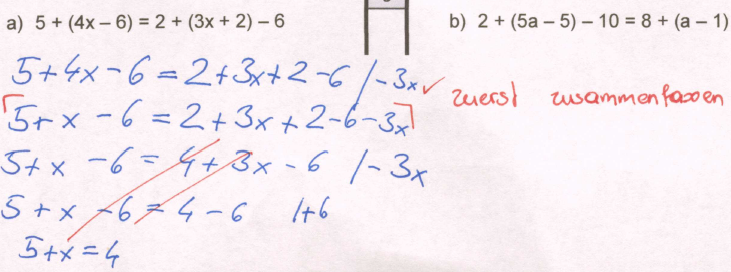 a) 5 + (4x – 6) = 2 + (3x + 2) – 6
b) 2 + (5a – 5) – 10 = 8 + (a – 1)
5+4x-6=2+3x+2-6 /-3x ✓
zuerst zusammenfassen
5+x-6=2+3x+2-6-3x
5+x-6=4+3x-6 /-3x
5+x-6=4-6 /+6
5+x=4